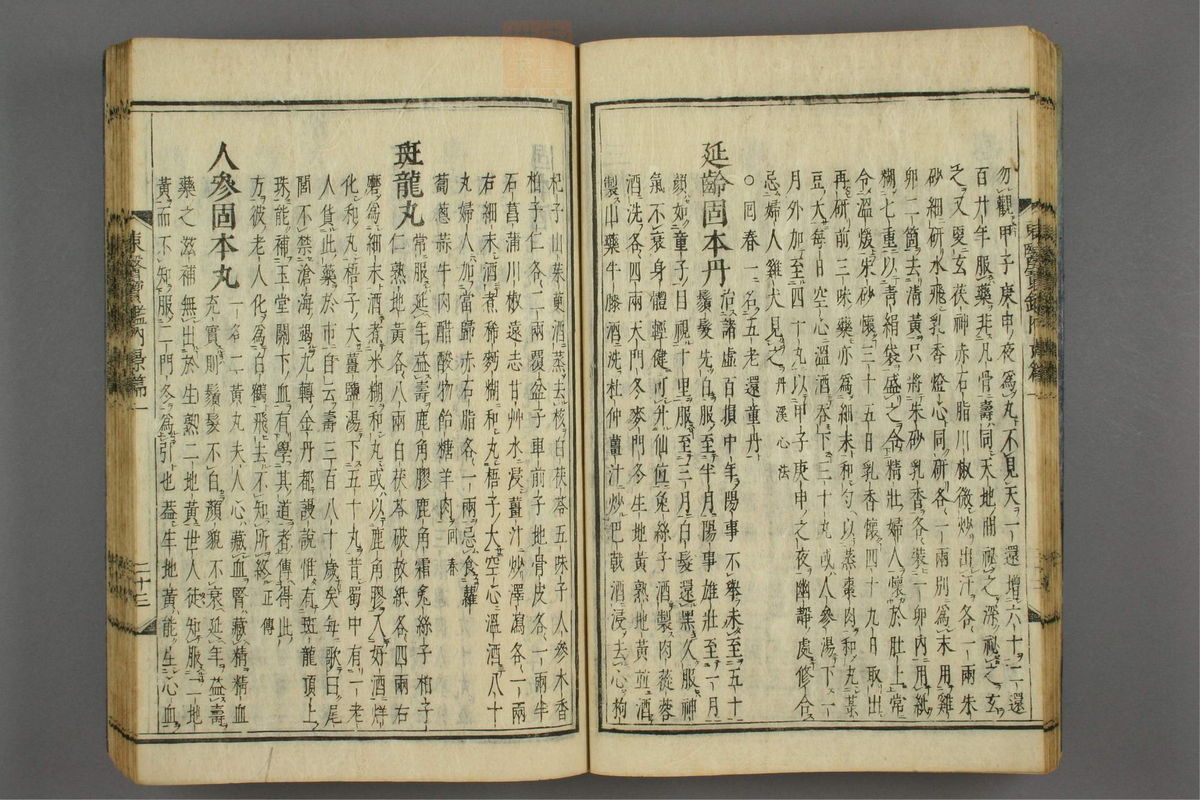 勿觀甲子庚申夜爲丸不見天一還增六十二還
百廿年服藥非凡骨壽同天地甫祕之深祕之玄
之又夏玄茯神赤石脂川椒微炒出汗各一兩朱
砂細研水飛乳香燈心同研各一兩別爲末用雞
卵二箇去淸黃只將朱砂乳香各裝一卵內用紙
糊七重以靑絹袋盛之令精壯婦人懷於肚上常
令溫煖朱砂懷三十五日乳香懷四十九日取出
再研前三味藥亦爲細末和勻以蒸棗肉和丸菉
豆大每日空心溫酒呑下三十丸或人參湯下一
月外加至四十九丸以甲子庚申之夜幽靜處修合
忌婦人雞犬見之丹溪心法
○回春一名五老還童丹
延齡固本丹治諸虛百損中年陽事不擧未至五十
鬚髮先白服至半月陽事雄壯至一月
顔如童子目視十里服至三月白髮還黑久服神
氣不衰身體輕健可升仙位兔絲子酒製肉蓯蓉
酒洗各四兩天門冬麥門冬生地黃熟地黃並酒
製山藥牛膝酒洗杜仲薑汁炒巴戟酒浸去心枸
杞子山茱萸酒蒸去核白茯苓五味子人參木香
柏子仁各二兩覆盆子車前子地骨皮各一兩半
石菖蒲川椒遠志甘艸水浸薑汁炒澤瀉各一兩
右細末酒煮稀麪糊和丸梧子大空心溫酒八十
丸婦人加當歸赤石脂各一兩忌食蘿
葍蔥蒜牛肉醋酸物飴糖羊肉回春
斑龍丸常服延年益壽鹿角膠鹿角霜兔絲子柏子
仁熟地黃各八兩白茯苓破故紙各四兩右
磨爲細末酒煮米糊和丸或以鹿角膠入好酒烊
化和丸梧子大薑鹽湯下五十丸昔蜀中有一老
人貨此藥於市自云壽三百八十歲矣每歌曰尾
閭不禁滄海竭九轉金丹都謾說惟有斑龍頂上
珠能補玉堂關下血有學其道者傳得此
方彼老人化爲白鶴飛去不知所終正傳
人參固本丸一名二黃丸夫人心藏血腎藏精精血
充實則鬚髮不白顏貌不衰延年益壽
藥之滋補無出於生熟二地黃世人徒知服二地
黃而不知服二門冬爲引也蓋生地黃能生心血
東醫寶鑑內景篇一
二十三